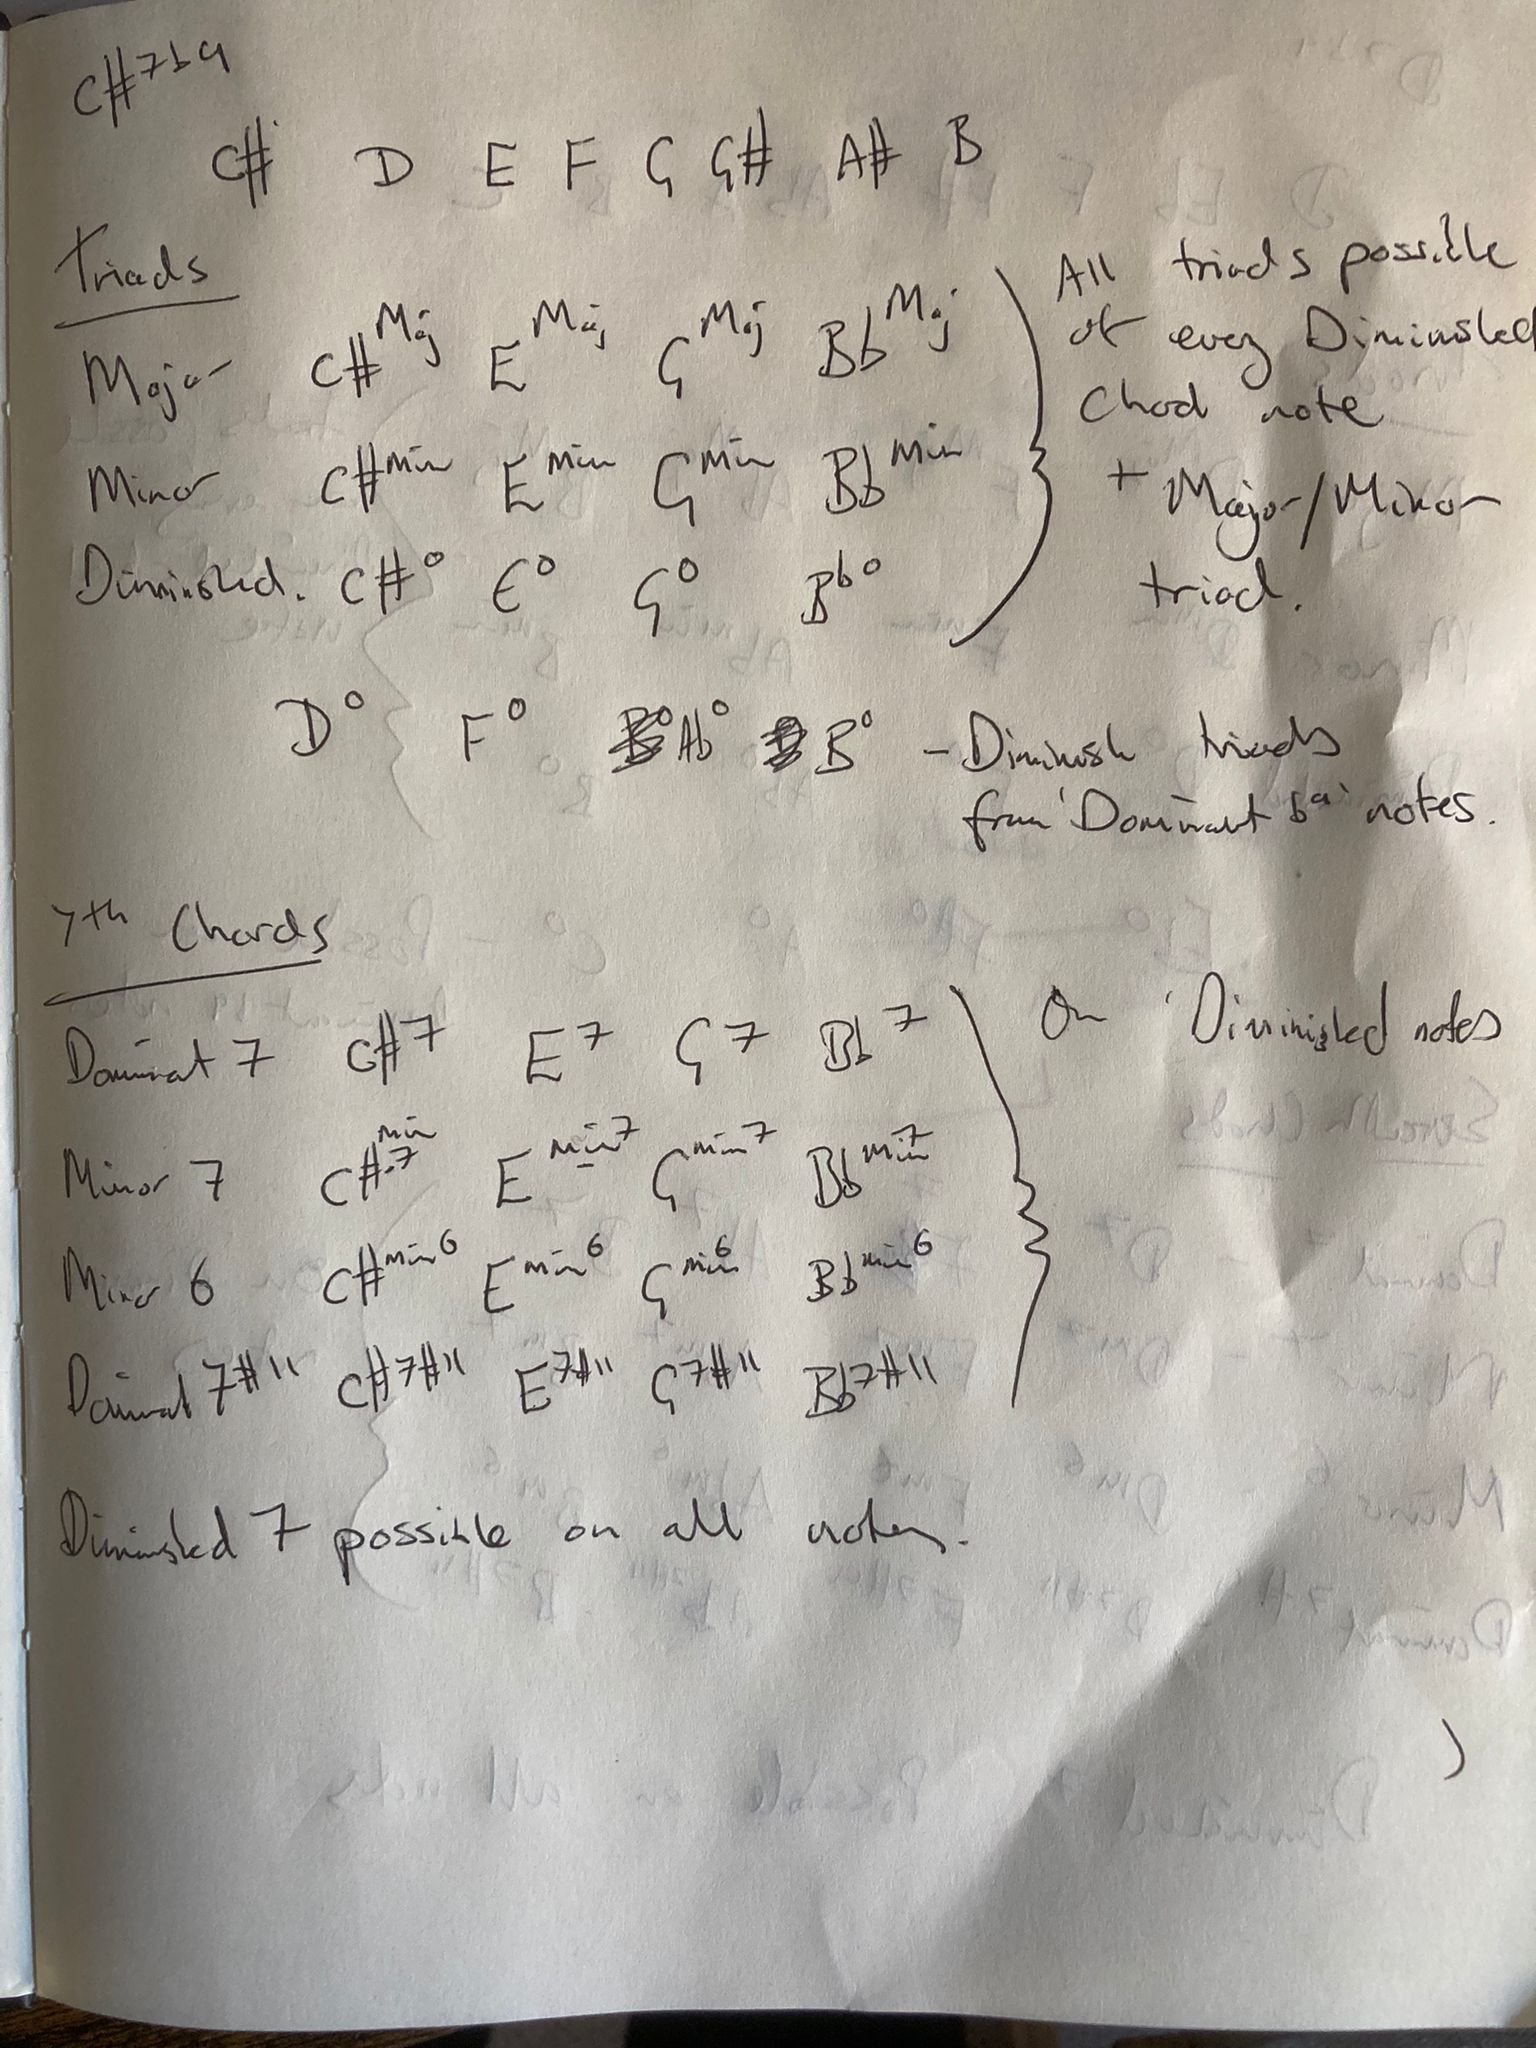 C#7b9
C# D E F G G# A# B
Triads
Major C#Maj EMaj GMaj BbMaj
Minor C#min Emin Gmin Bbmin
Diminished. C#° E° G° Bb°
All triads possible
of every Diminished
Chord note
+ Major/Minor
triad.
D° F° Ab° B° - Diminish triads
from 'Dominant b9' notes.
7th Chords
Dominat 7 C#7 E7 G7 Bb7
Minor 7 C#min7 Emin7 Gmin7 Bbmin7
Minor 6 C#min6 Emin6 Gmin6 Bbmin6
Dominat 7#11 C#7#11 E7#11 G7#11 Bb7#11
On 'Diminished notes
Diminished 7 possible on all notes.